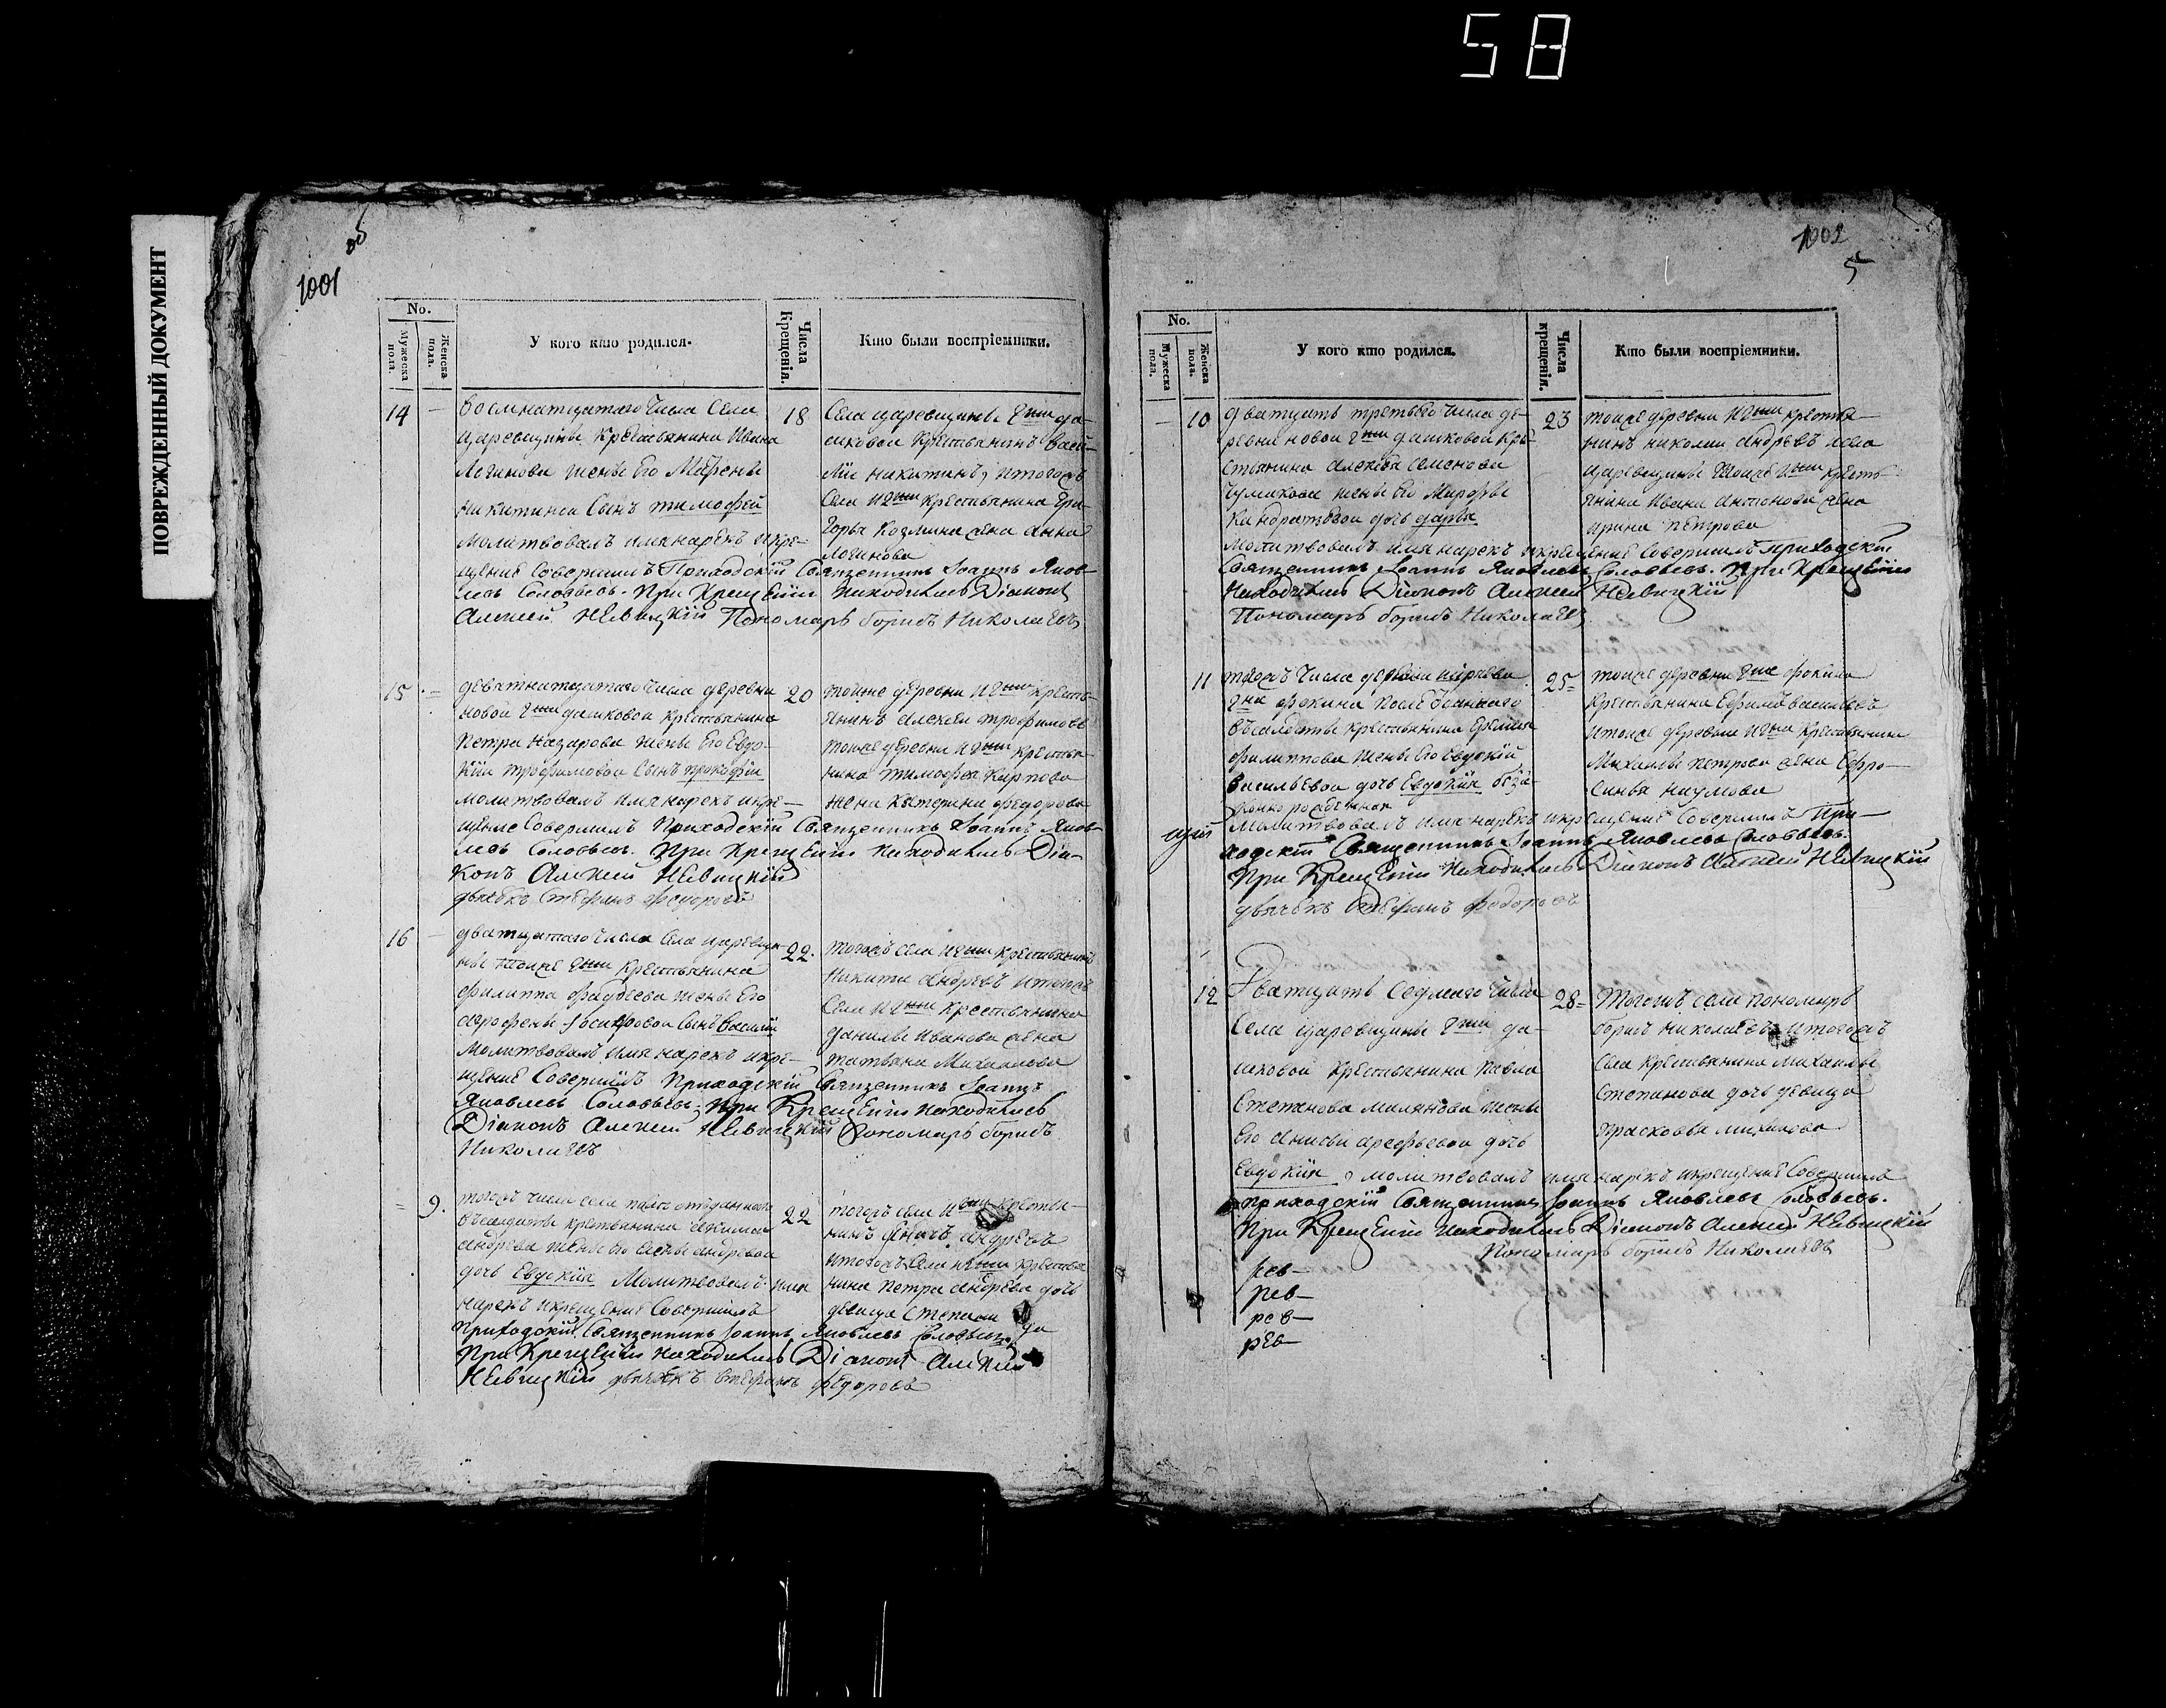 58
ПОВРЕЖДЕННЫЙ ДОКУМЕНТ
об
1001
No.
Мужеска пола.
Женска пола.
У кого кто родился.
Числа Крещенія.
Кто были воспріемники.
14
18
Восемнатцатаго числа Села
Царевщины Крестьянина Ивана
Логинова жены Его Марфены
Никитина Сынъ тимофей
молитвовалъ имя нарекъ икре-
щение Совершилъ Приходскій Священникъ Іоаннъ Яков-
левъ Соловьевъ. При Крещеніи находились Діаконъ
Алексей Невицкій Пономарь борисъ Николаевъ
Села царевщины Гжи да-
шковой Крестьянинъ Васи-
лій никитинъ, итогожъ
Села иГжи Крестьянина Гри-
горья Козмина жена Анна
Логинова
15
20
девятнатцатаго числа деревни
новой Гжи дашковой крестьянина
Петра Назарова жены Его Евдо-
кіи трофимовой Сынъ прокофій
молитвовалъ имя нарекъ икре-
щение Совершилъ Приходскій Священникъ Іоаннъ Яков-
левъ Соловьевъ. При Крещеніи находились Діа-
конъ Алексей Невицкій
дьячекъ Стефанъ федоровъ
тойже деревни иГжи кресть-
янинъ алексей трофимовъ
тойже деревни иГжи крестья-
нина тимофея Карпова
жена Катерина федорова
16
22.
дватцатаго числа Села царевщи-
ны тойже Гжи крестьянина
филиппа фадеева жены Его
агрофены Іосифовой Сынъ Василій
молитвовалъ имя нарекъ икре-
щение Совершилъ Приходскій Священникъ Іоаннъ
Яковлевъ Соловьевъ. При Крещеніи находились
Діаконъ Алексей Невицкій Пономарь борисъ
Николаевъ
тогожъ села иГжи крестьянинъ
Никита андреевъ итогожъ
Села иГжи Крестьянина
данилы иванова жена
татьяна Михайлова
9.
22
тогожъ числа села
въ солдаты крестьянина
андреева жены Его андреевой
дочь Евдокія молитвовалъ имя
нарекъ икрещение Совершилъ
Приходскій Священникъ Іоаннъ Яковлевъ Соловьевъ
При Крещеніи находились Діаконъ Алексей
Невицкій дьячекъ Стефанъ федоровъ
тогожъ села иГжи крестья-
нинъ андреевъ
итогожъ села иГжи крестья
нина петра андреева дочь
девица Степани да
1002
5
No.
Мужеска пола.
Женска пола.
У кого кто родился.
Числа крещенія.
Кто были воспріемники.
10
23
дватцать третьего числа де-
ревни новой Гжи дашковой кре-
стьянина алексея Семенова
Чумакова жены Его Марфы
Кандратьевой дочь дарья
молитвовалъ имя нарекъ икрещение Совершилъ приходскій
Священникъ Іоаннъ Яковлевъ Соловьевъ. При Крещеніи
находились Діаконъ Алексей Невицкій
Пономарь борисъ Николаевъ
тойже деревни иГжи крестья-
нинъ николай андреевъ села
царевщины тойже Гжи кресть-
янина Ивана антонова жена
ирина петрова
11
25
тогожъ числа деревни
Гжи фокина
въ солдаты крестьянина
филиппова жены Его Евдокіи
васильевой дочь Евдокія беза-
конно рожденная
молитвовалъ имя нарекъ икрещение Совершилъ При-
ходскій Священникъ Іоаннъ Яковлевъ Соловьевъ.
При Крещеніи находились Діаконъ Алексей Невицкій
дьячекъ Стефанъ федоровъ
тойже деревни Гжи фокина
крестьянина Ефимъ васильевъ
итойже деревни иГжи крестьянина
Михайлы петрова жена Ефро-
синья наумова
12
28
Дватцать седмаго числа
Села царевщины Гжи да-
шковой крестьянина павла
Степанова жены
Его анисьи арефьевой дочь
Евдокія, молитвовалъ имя нарекъ икрещение Совершилъ
приходскій Священникъ Іоаннъ Яковлевъ Соловьевъ.
При Крещеніи находились Діаконъ Алексей Невицкій
Пономарь борисъ Николаевъ
Тогожъ села пономарь
борисъ николаевъ итогожъ
Села крестьянина михайлы
Степанова дочь девица
прасковья михайлова
рев-
рев-
рев-
рев-